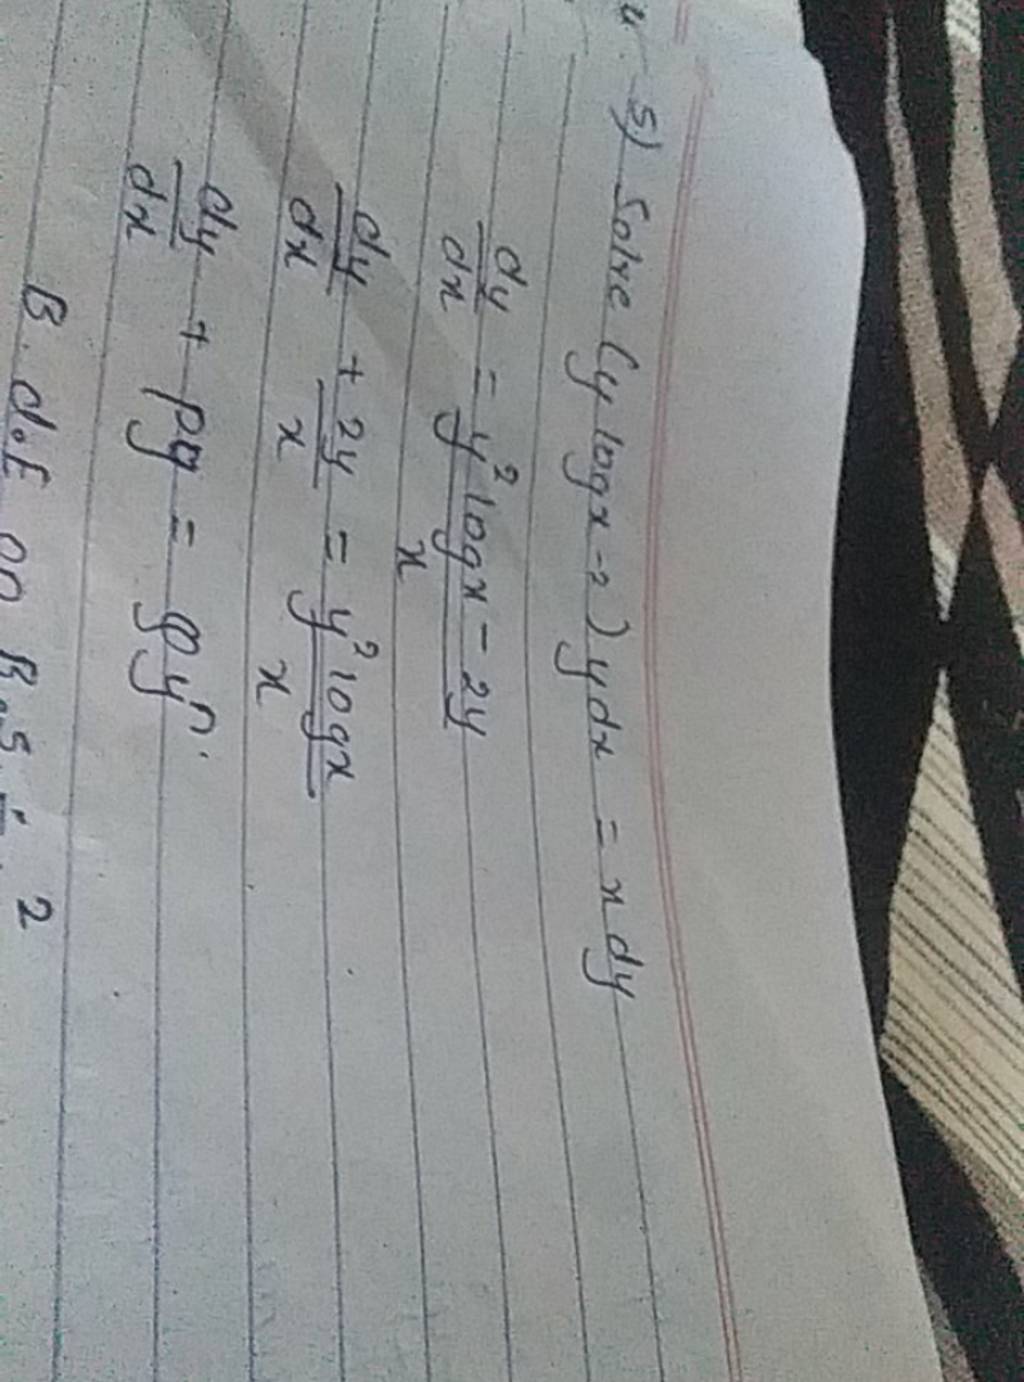 5) Solve (y log x - 2) y dx = x dy
dy/dx = y² log x - 2y / x
dy/dx + 2y/x = y² log x / x
dy/dx + py = φyⁿ.
B.d.E on B.S. 2